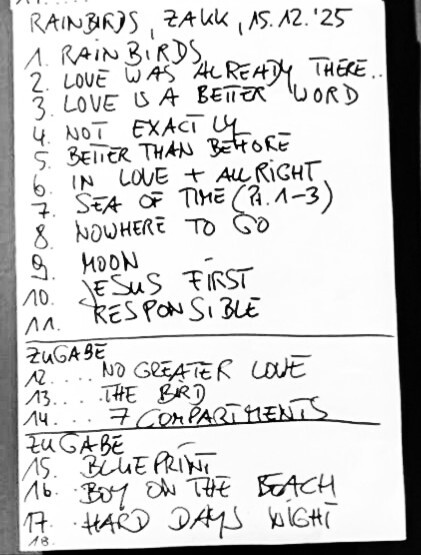 RAINBIRDS, ZAKK, 15.12.'25
1. RAINBIRDS
2. LOVE WAS ALREADY THERE..
3. LOVE IS A BETTER WORD
4. NOT EXACTLY
5. BETTER THAN BEFORE
6. IN LOVE + ALLRIGHT
7. SEA OF TIME (Pt. 1-3)
8. NOWHERE TO GO
9. MOON
10. JESUS FIRST
11. RESPONSIBLE
ZUGABE
12.... NO GREATER LOVE
13.... THE BIRD
14.... 7 COMPARTMENTS
ZUGABE
15. BLUEPRINT
16. BOY ON THE BEACH
17. HARD DAYS NIGHT
18.